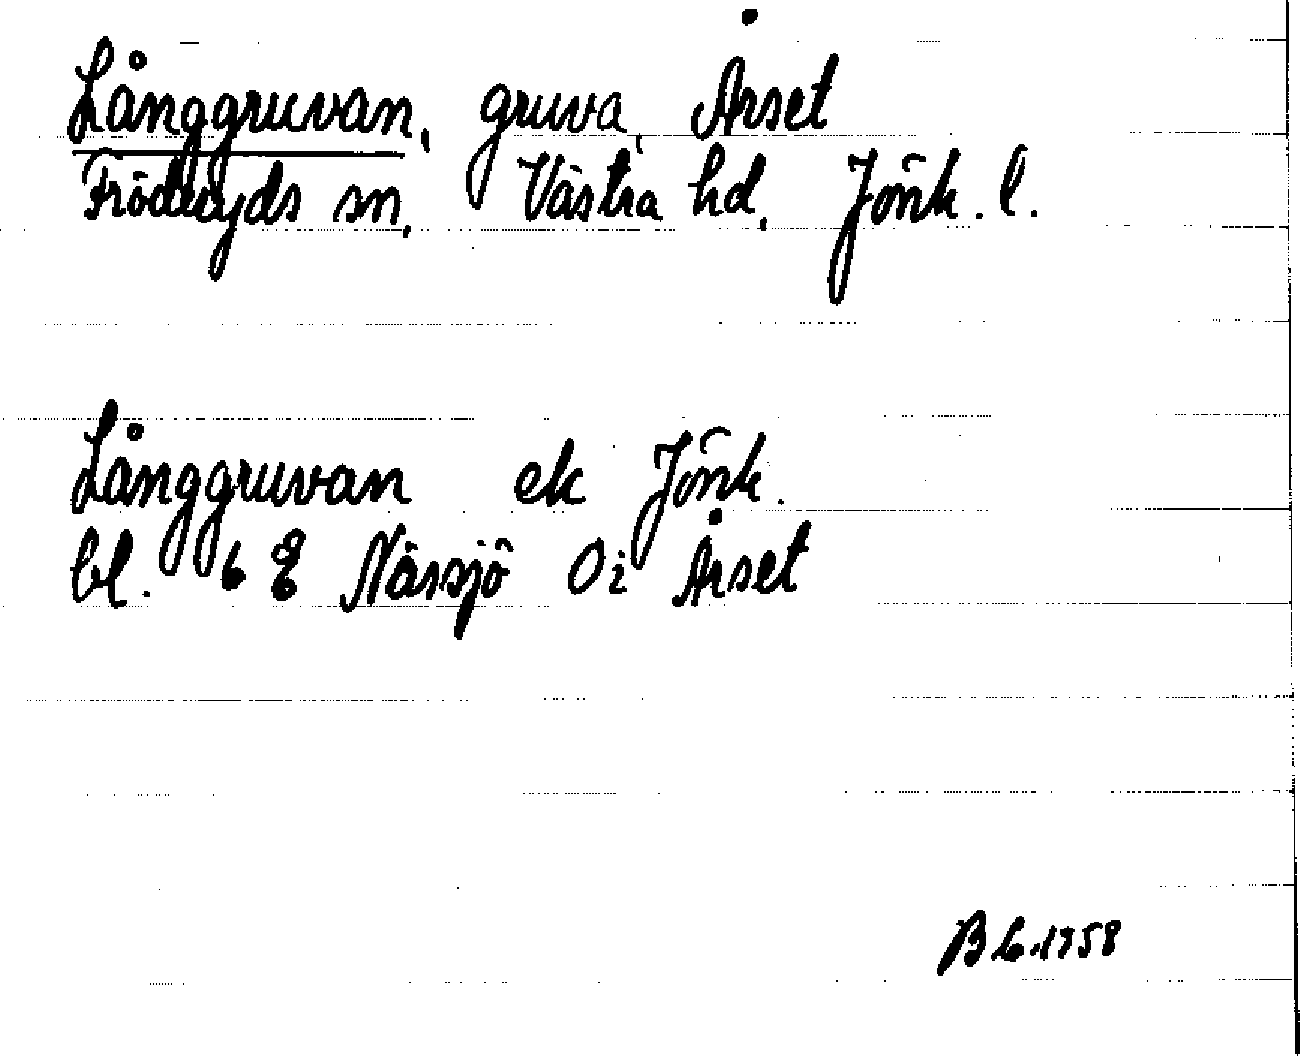 Långgruvan, gruva, Årset
Fröderyds sn, Västra hd, Jönk. l.
Långgruvan ek Jönk.
bl. 6 E Nässjö 0i Årset
1958